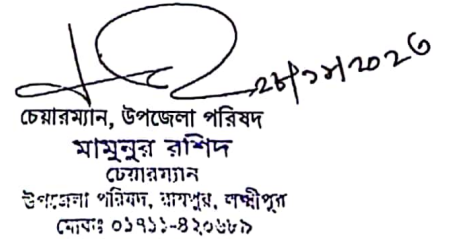 চেয়ারম্যান, উপজেলা পরিষদ
মামুনুর রশিদ
চেয়ারম্যান
উপজেলা পরিষদ, রায়পুর, লক্ষ্মীপুর
মোবাঃ ০১৭১১-৪২০৬৮৯